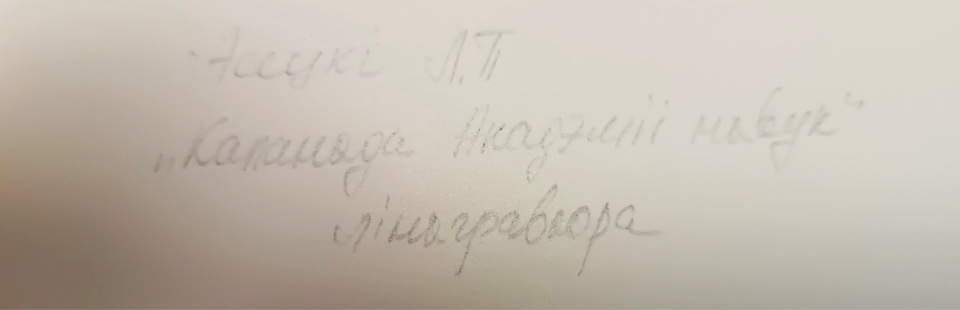 Л.П
„Каланада Акадэміі навук"
лінагравюра